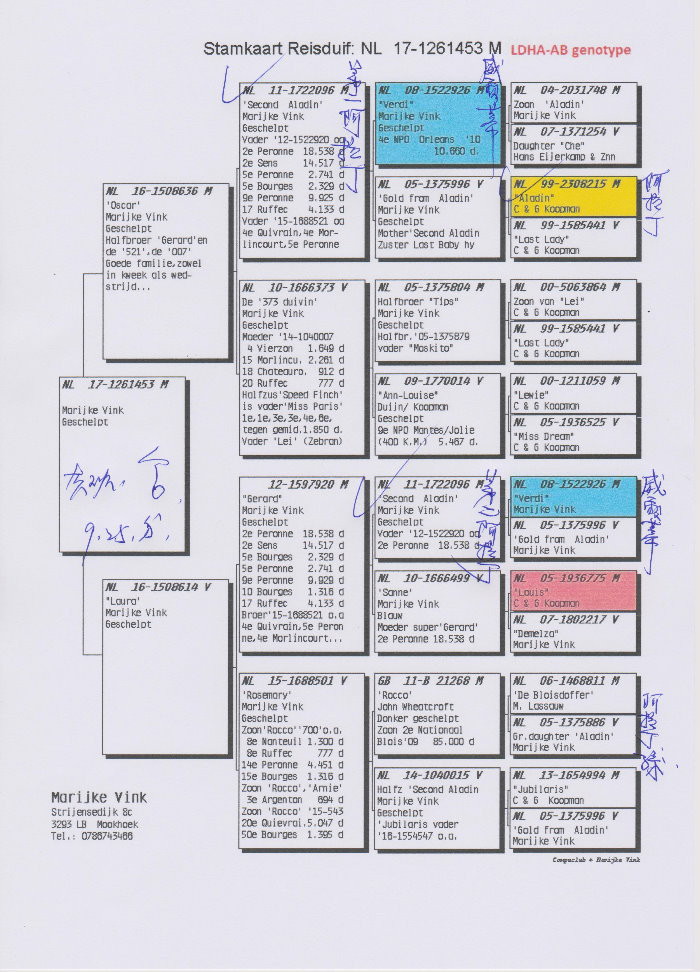 Stamkaart Reisduif: NL 17-1261453 M LDHA-AB genotype
NL 17-1261453 M
Marijke Vink
Geschelpt
9.25.
NL 16-1508636 M
'Oscar'
Marijke Vink
Geschelpt
Halfbroer 'Gerard'en
de '521',de '007'
Goede familie,zowel
in kweek als wed-
strijd...
NL 16-1508614 V
"Laura"
Marijke Vink
Geschelpt
NL 11-1722096 M
'Second Aladin'
Marijke Vink
Geschelpt
Vader '12-1522920 oa
2e Peronne 18.538 d
2e Sens 14.517 d
5e Peronne 2.741 d
5e Bourges 2.329 d
9e Peronne 9.925 d
17 Ruffec 4.133 d
Vader '15-1688521 oa
4e Quivrain,4e Mor-
lincourt,5e Peronne
NL 10-1666373 V
De '373 duivin'
Marijke Vink
Geschelpt
Moeder '14-1040007
4 Vierzon 1.649 d
15 Morlincu. 2.261
18 Chateauro. 912 d
20 Ruffec 777 d
Halfzus'Speed Finch'
is vader'Miss Paris'
1e,1e,3e,3e,4e,6e,
tegen gemid.1.850 d.
Vader 'Lei' (Zebran)
12-1597920 M
"Gerard"
Marijke Vink
Geschelpt
2e Peronne 18.538 d
2e Sens 14.517 d
5e Bourges 2.329 d
5e Peronne 2.741 d
9e Peronne 9.929 d
10 Bourges 1.316 d
17 Ruffec 4.133 d
Broer'15-1688521 o.a
4e Quivrain,5e Peron
ne,4e Morlincourt...
NL 15-1688501 V
'Rosemary'
Marijke Vink
Geschelpt
Zoon'Rocco''700'o.a.
8e Nanteuil 1.300 d
8e Ruffec 777 d
14e Peronne 4.451 d
15e Bourges 1.316 d
Zoon 'Rocco','Arnie'
3e Argenton 694 d
Zoon 'Rocco' '15-543
20e Quievrai.5.047 d
50e Bourges 1.395 d
NL 08-1522926 M
"Verdi"
Marijke Vink
Geschelpt
4e NPO Orleans '10
10.660 d.
NL 05-1375996 V
'Gold from Aladin'
Marijke Vink
Geschelpt
Mother'Second Aladin
Zuster Last Baby hy
NL 05-1375804 M
Halfbroer "Tips"
Marijke Vink
Geschelpt
Halfbr.'05-1375879
vader "Moskito"
NL 09-1770014 V
"Ann-Louise"
Duijn/ Koopman
Geschelpt
9e NPO Mantes/Jolie
(400 K.M.) 5.467 d.
NL 11-1722096 M
'Second Aladin'
Marijke Vink
Geschelpt
Vader '12-1522920 oa
2e Peronne 18.538 d
NL 10-1666499 V
'Sanne'
Marijke Vink
Blauw
Moeder super'Gerard'
2e Peronne 18.538 d
GB 11-B 21268 M
'Rocco'
John Wheatcroft
Donker geschelpt
Zoon 2e Nationaal
Blois'09 85.000 d
NL 14-1040015 V
Halfz 'Second Aladin
Marijke Vink
Geschelpt
'Jubilaris vader
'16-1554547 o.a.
NL 04-2031748 M
Zoon 'Aladin'
Marijke Vink
NL 07-1371254 V
Daughter "Che"
Hans Eijerkamp & Znn
NL 99-2308215 M
"Aladin"
C & G Koopman
NL 99-1585441 V
"Last Lady"
C & G Koopman
阿拉丁
NL 00-5063864 M
Zoon van "Lei"
C & G Koopman
NL 99-1585441 V
"Last Lady"
C & G Koopman
NL 00-1211059 M
"Lewie"
C & G Koopman
NL 05-1936525 V
"Miss Dream"
C & G Koopman
NL 08-1522926 M
"Verdi"
Marijke Vink
NL 05-1375996 V
'Gold from Aladin'
Marijke Vink
NL 05-1936775 M
'Louis"
C & G Koopman
NL 07-1802217 V
"Demelza"
Marijke Vink
NL 06-1468811 M
'De Bloisdoffer'
M. Lassouw
NL 05-1375886 V
Gr.daughter 'Aladin'
Marijke Vink
阿拉丁
NL 13-1654994 M
"Jubilaris"
C & G Koopman
NL 05-1375996 V
'Gold from Aladin'
Marijke Vink
Marijke Vink
Strijensedijk 8c
3293 LB Mookhoek
Tel.: 0786743466
Compuclub + Marijke Vink